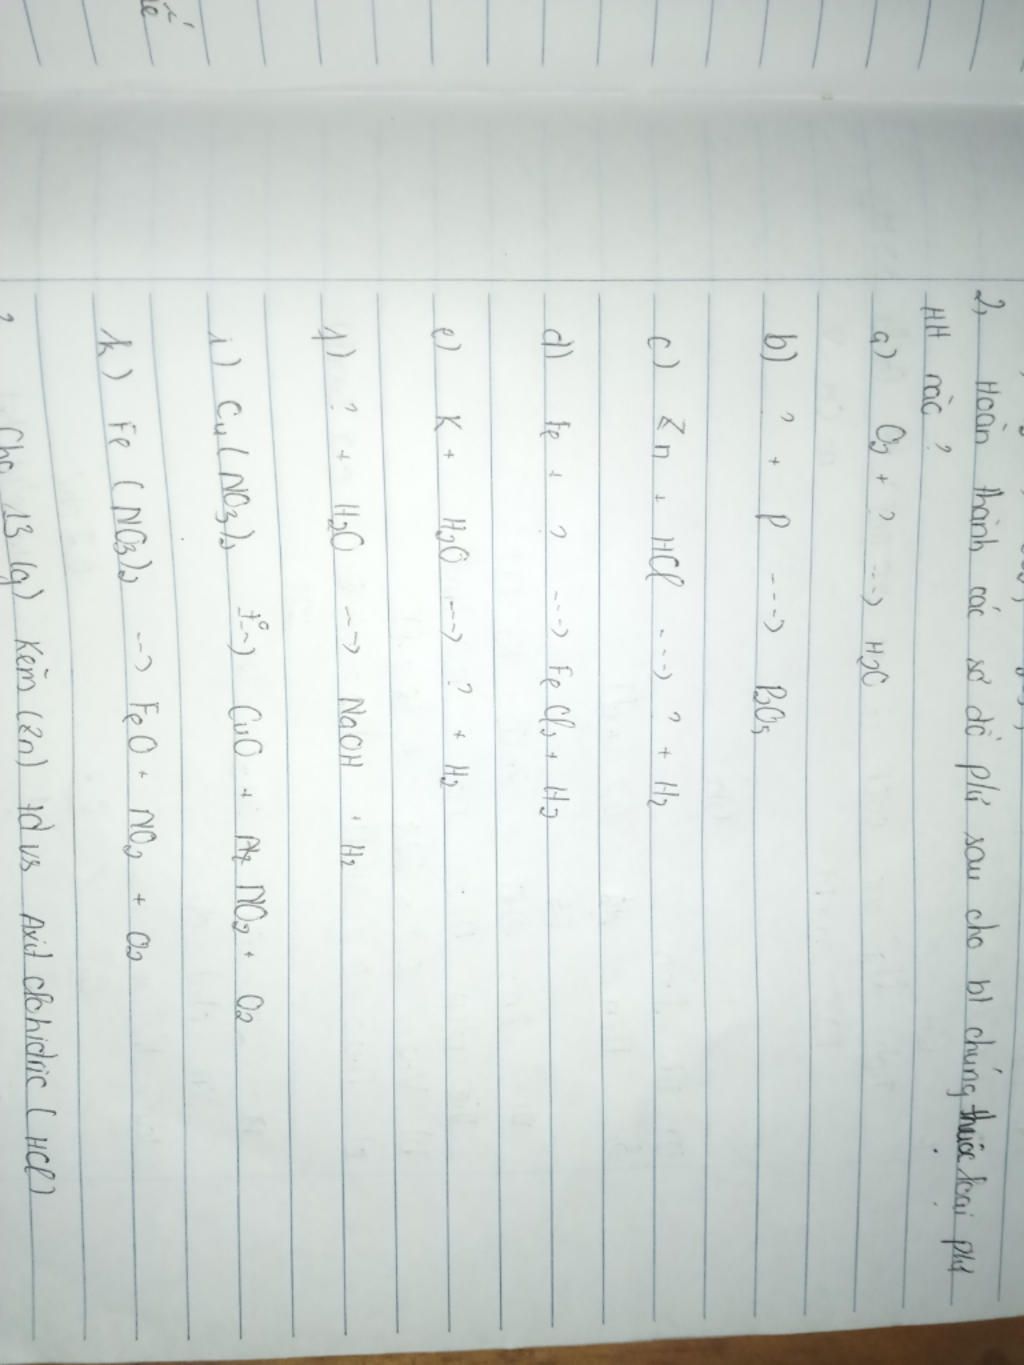 2, Hoàn thành các sơ đồ pứ sau cho bt chúng thuộc loại pứ
HH nào?
a) O2 + ? ---> H2O
b) ? + P ---> P2O5
c) Zn + HCl ---> ? + H2
d) Fe + ? ---> FeCl2 + H2
e) K + H2O ---> ? + H2
f) ? + H2O ---> NaOH + H2
i) Cu(NO3)2 t°--> CuO + NO2 + O2
k) Fe(NO3)2 --> FeO + NO2 + O2
Cho 13 (g) Kẽm (Zn) td vs Axit clohidric (HCl)